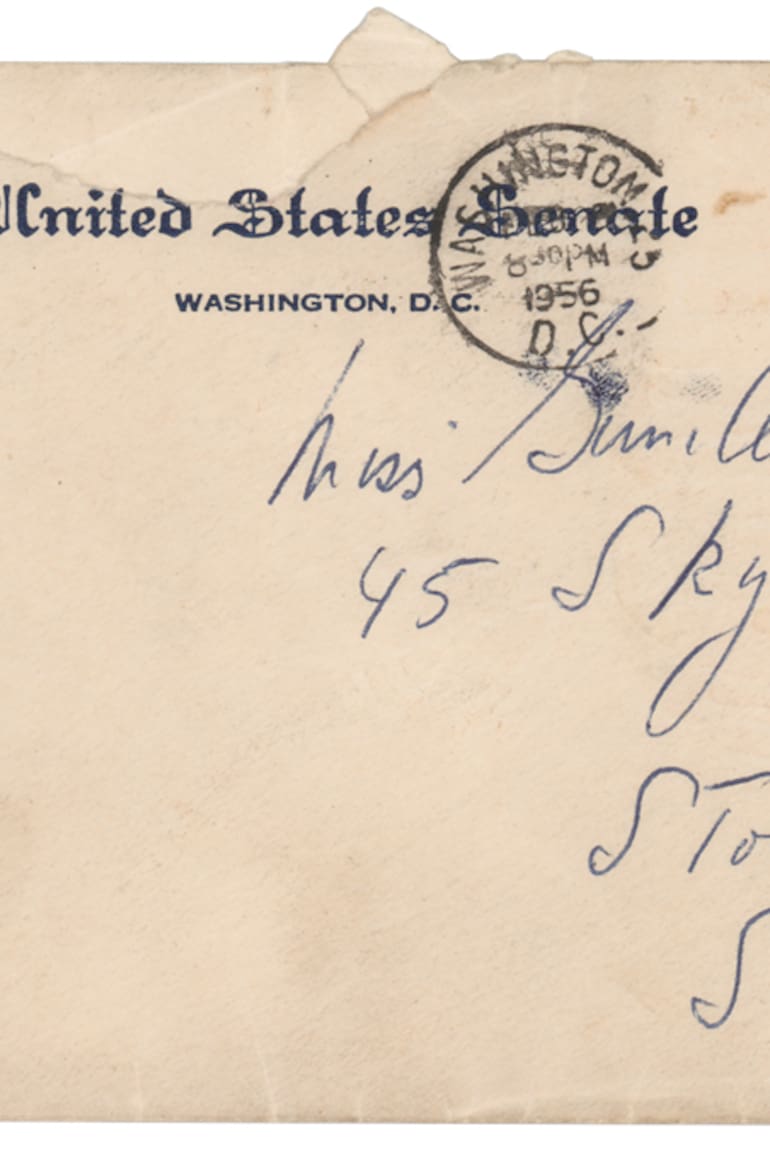 United States Senate
WASHINGTON, D. C.
WASHINGTON
PM
1956
D.C.
Miss
45 Sky
Sto
S